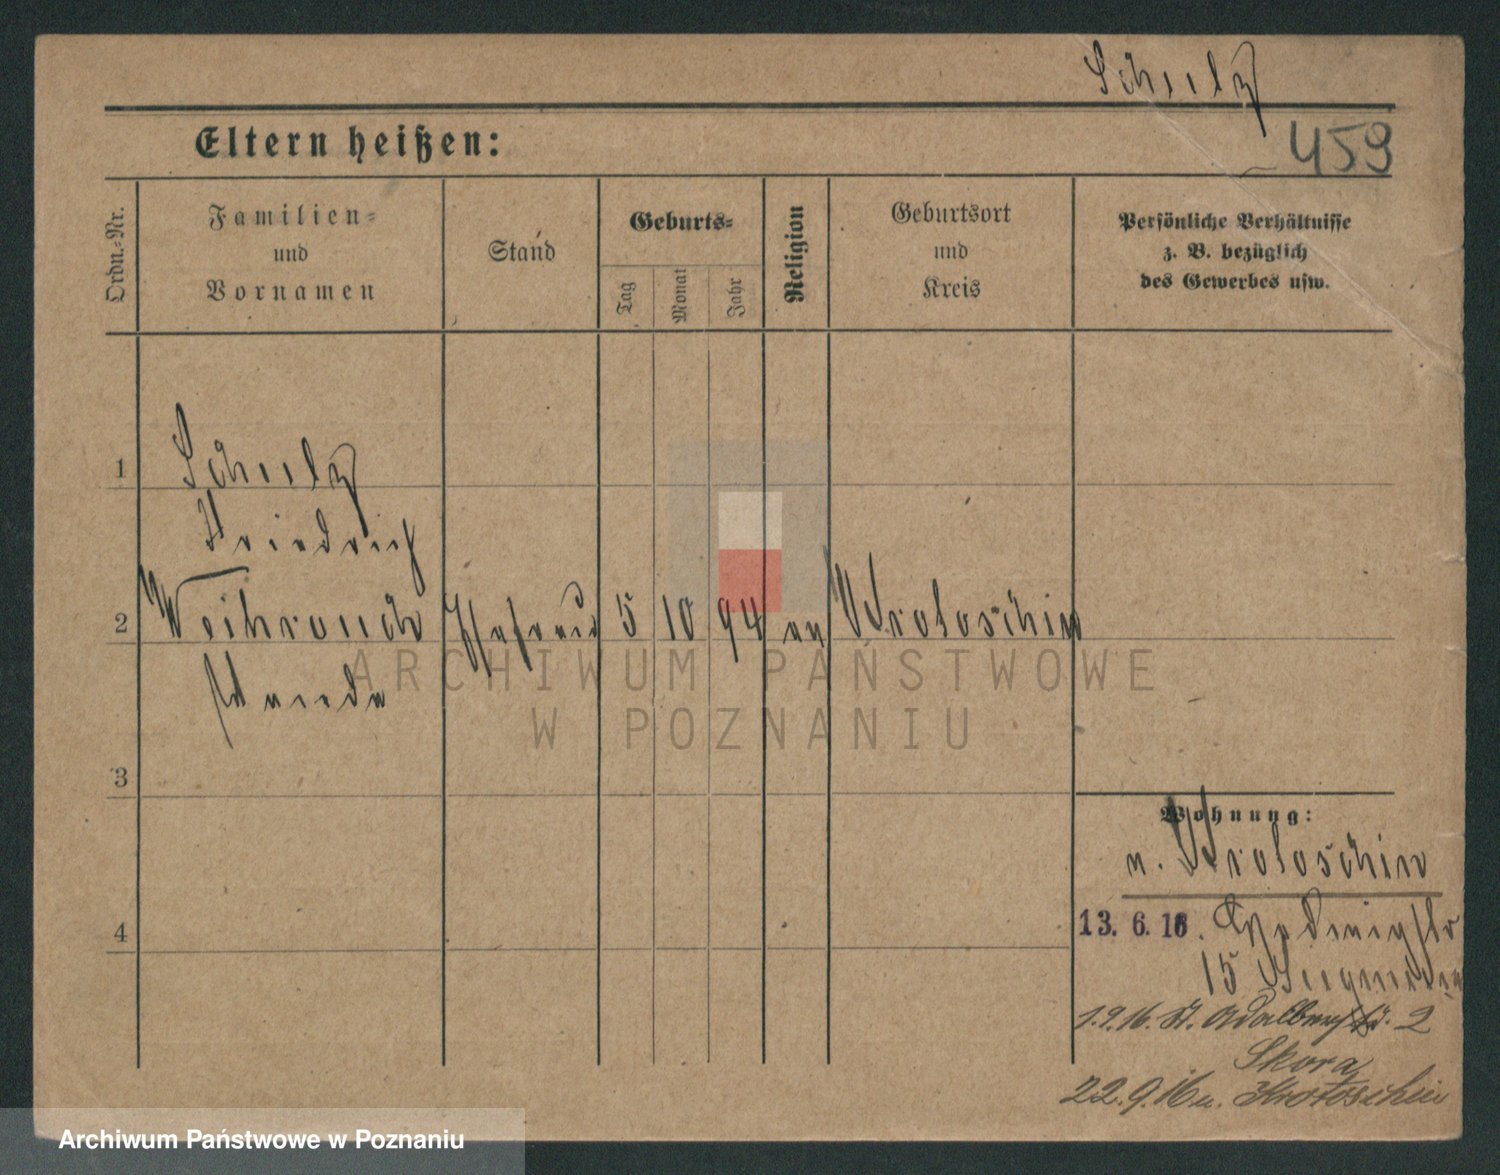 Schulz
Eltern heißen:
459
Ordn.=Nr.
Familien=
und
Vornamen
Stand
Geburts=
Tag
Monat
Jahr
Religion
Geburtsort
und
Kreis
Persönliche Verhältnisse
z. B. bezüglich
des Gewerbes usw.
1
Schulz
Friedrich
2
Weihrauch
5
10
94
ev
Krotoschin
Wanda
3
4
Wohnung:
n. Krotoschin
13. 6. 16.
15
1.9.16. St. Adalbertstr. 2
Skora
22.9.16 n. Krotoschin
ARCHIWUM PAŃSTWOWE
W POZNANIU
Archiwum Państwowe w Poznaniu